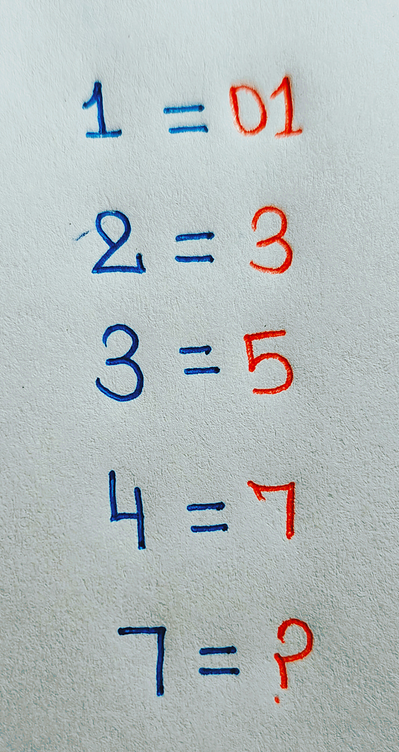 1 = 01
2 = 3
3 = 5
4 = 7
7 = ?